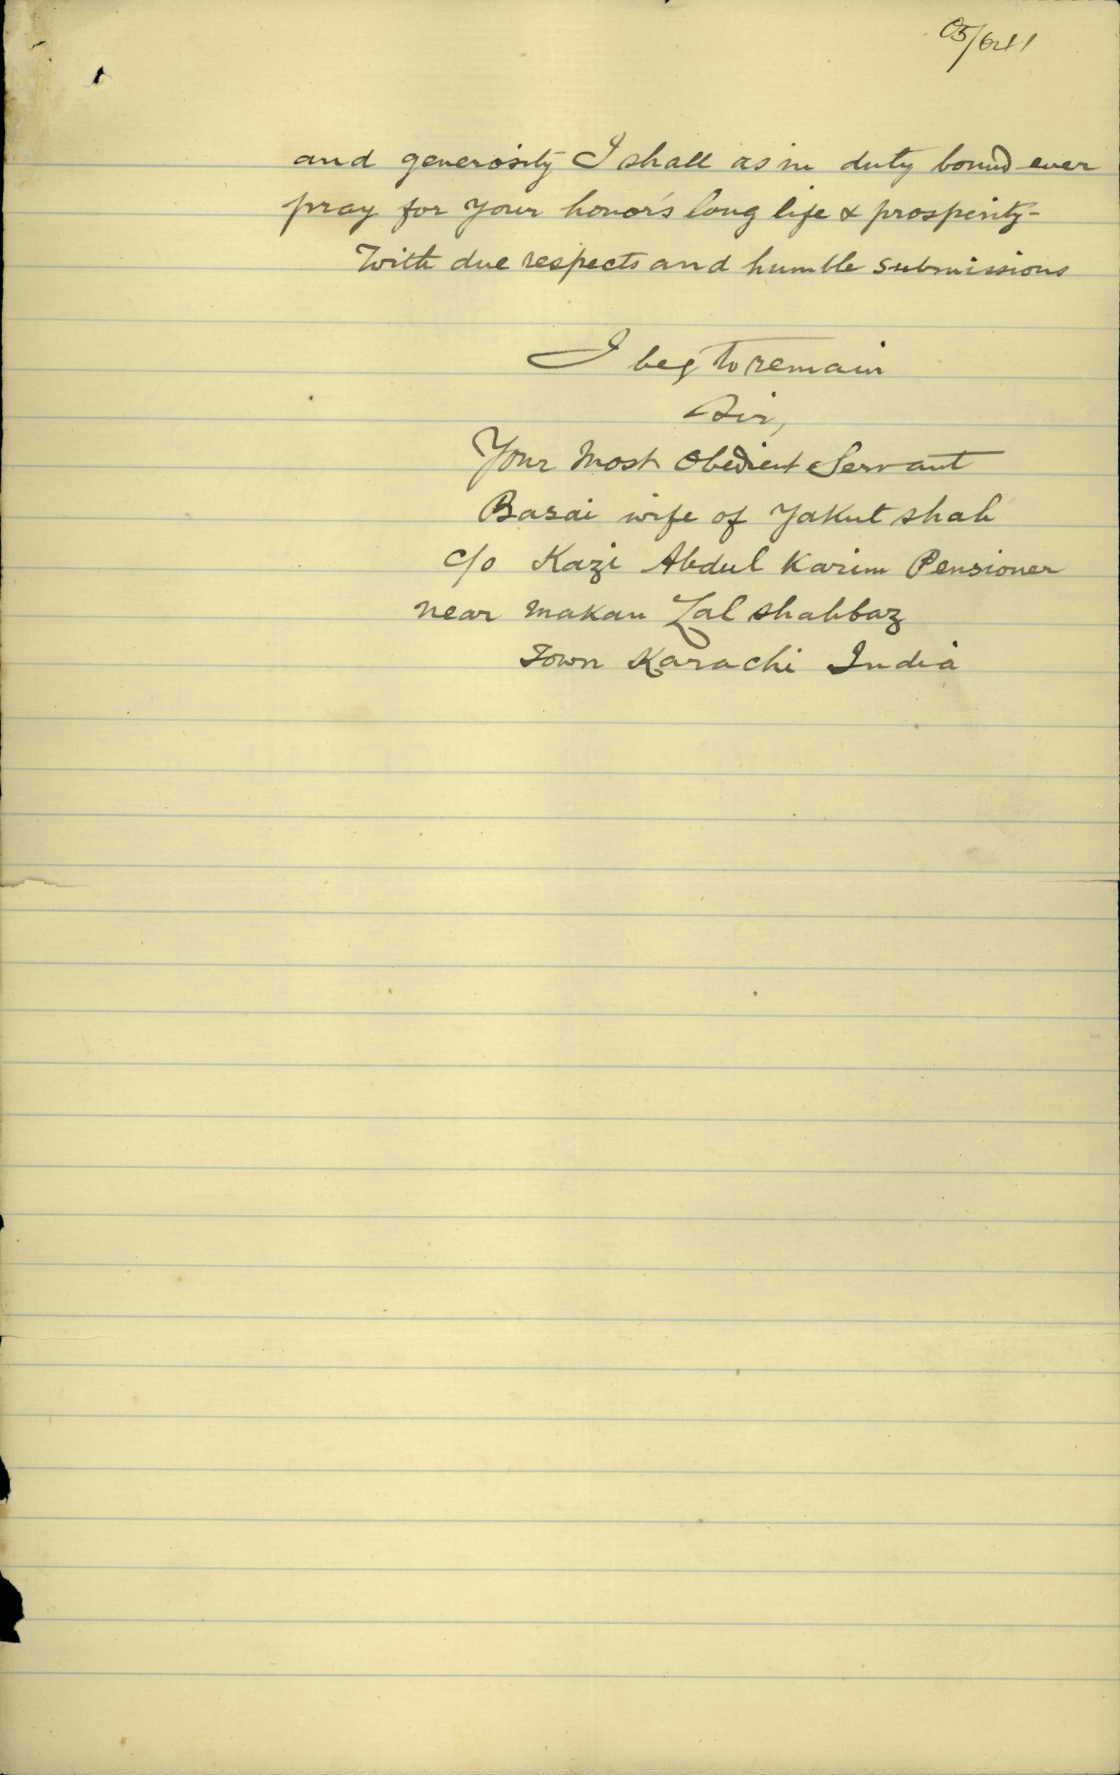 C5/6211
and generosity I shall as in duty bound ever
pray for your honor's long life & prosperity-
With due respects and humble submissions
I beg to remain
Sir,
Your Most Obedient Servant
Basai wife of Yakut shah
c/o Kazi Abdul Karim Pensioner
near makan Lal shahbaz
Town Karachi India